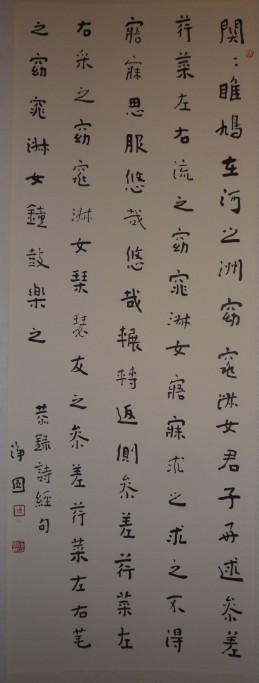 関〻雎鳩在河之洲窈窕淑女君子好逑参差
荇菜左右流之窈窕淑女寤寐求之求之不得
寤寐思服悠哉悠哉輾轉返側参差荇菜左
右采之窈窕淑女琴瑟友之参差荇菜左右芼
之窈窕淑女鐘鼓樂之
恭録詩經句